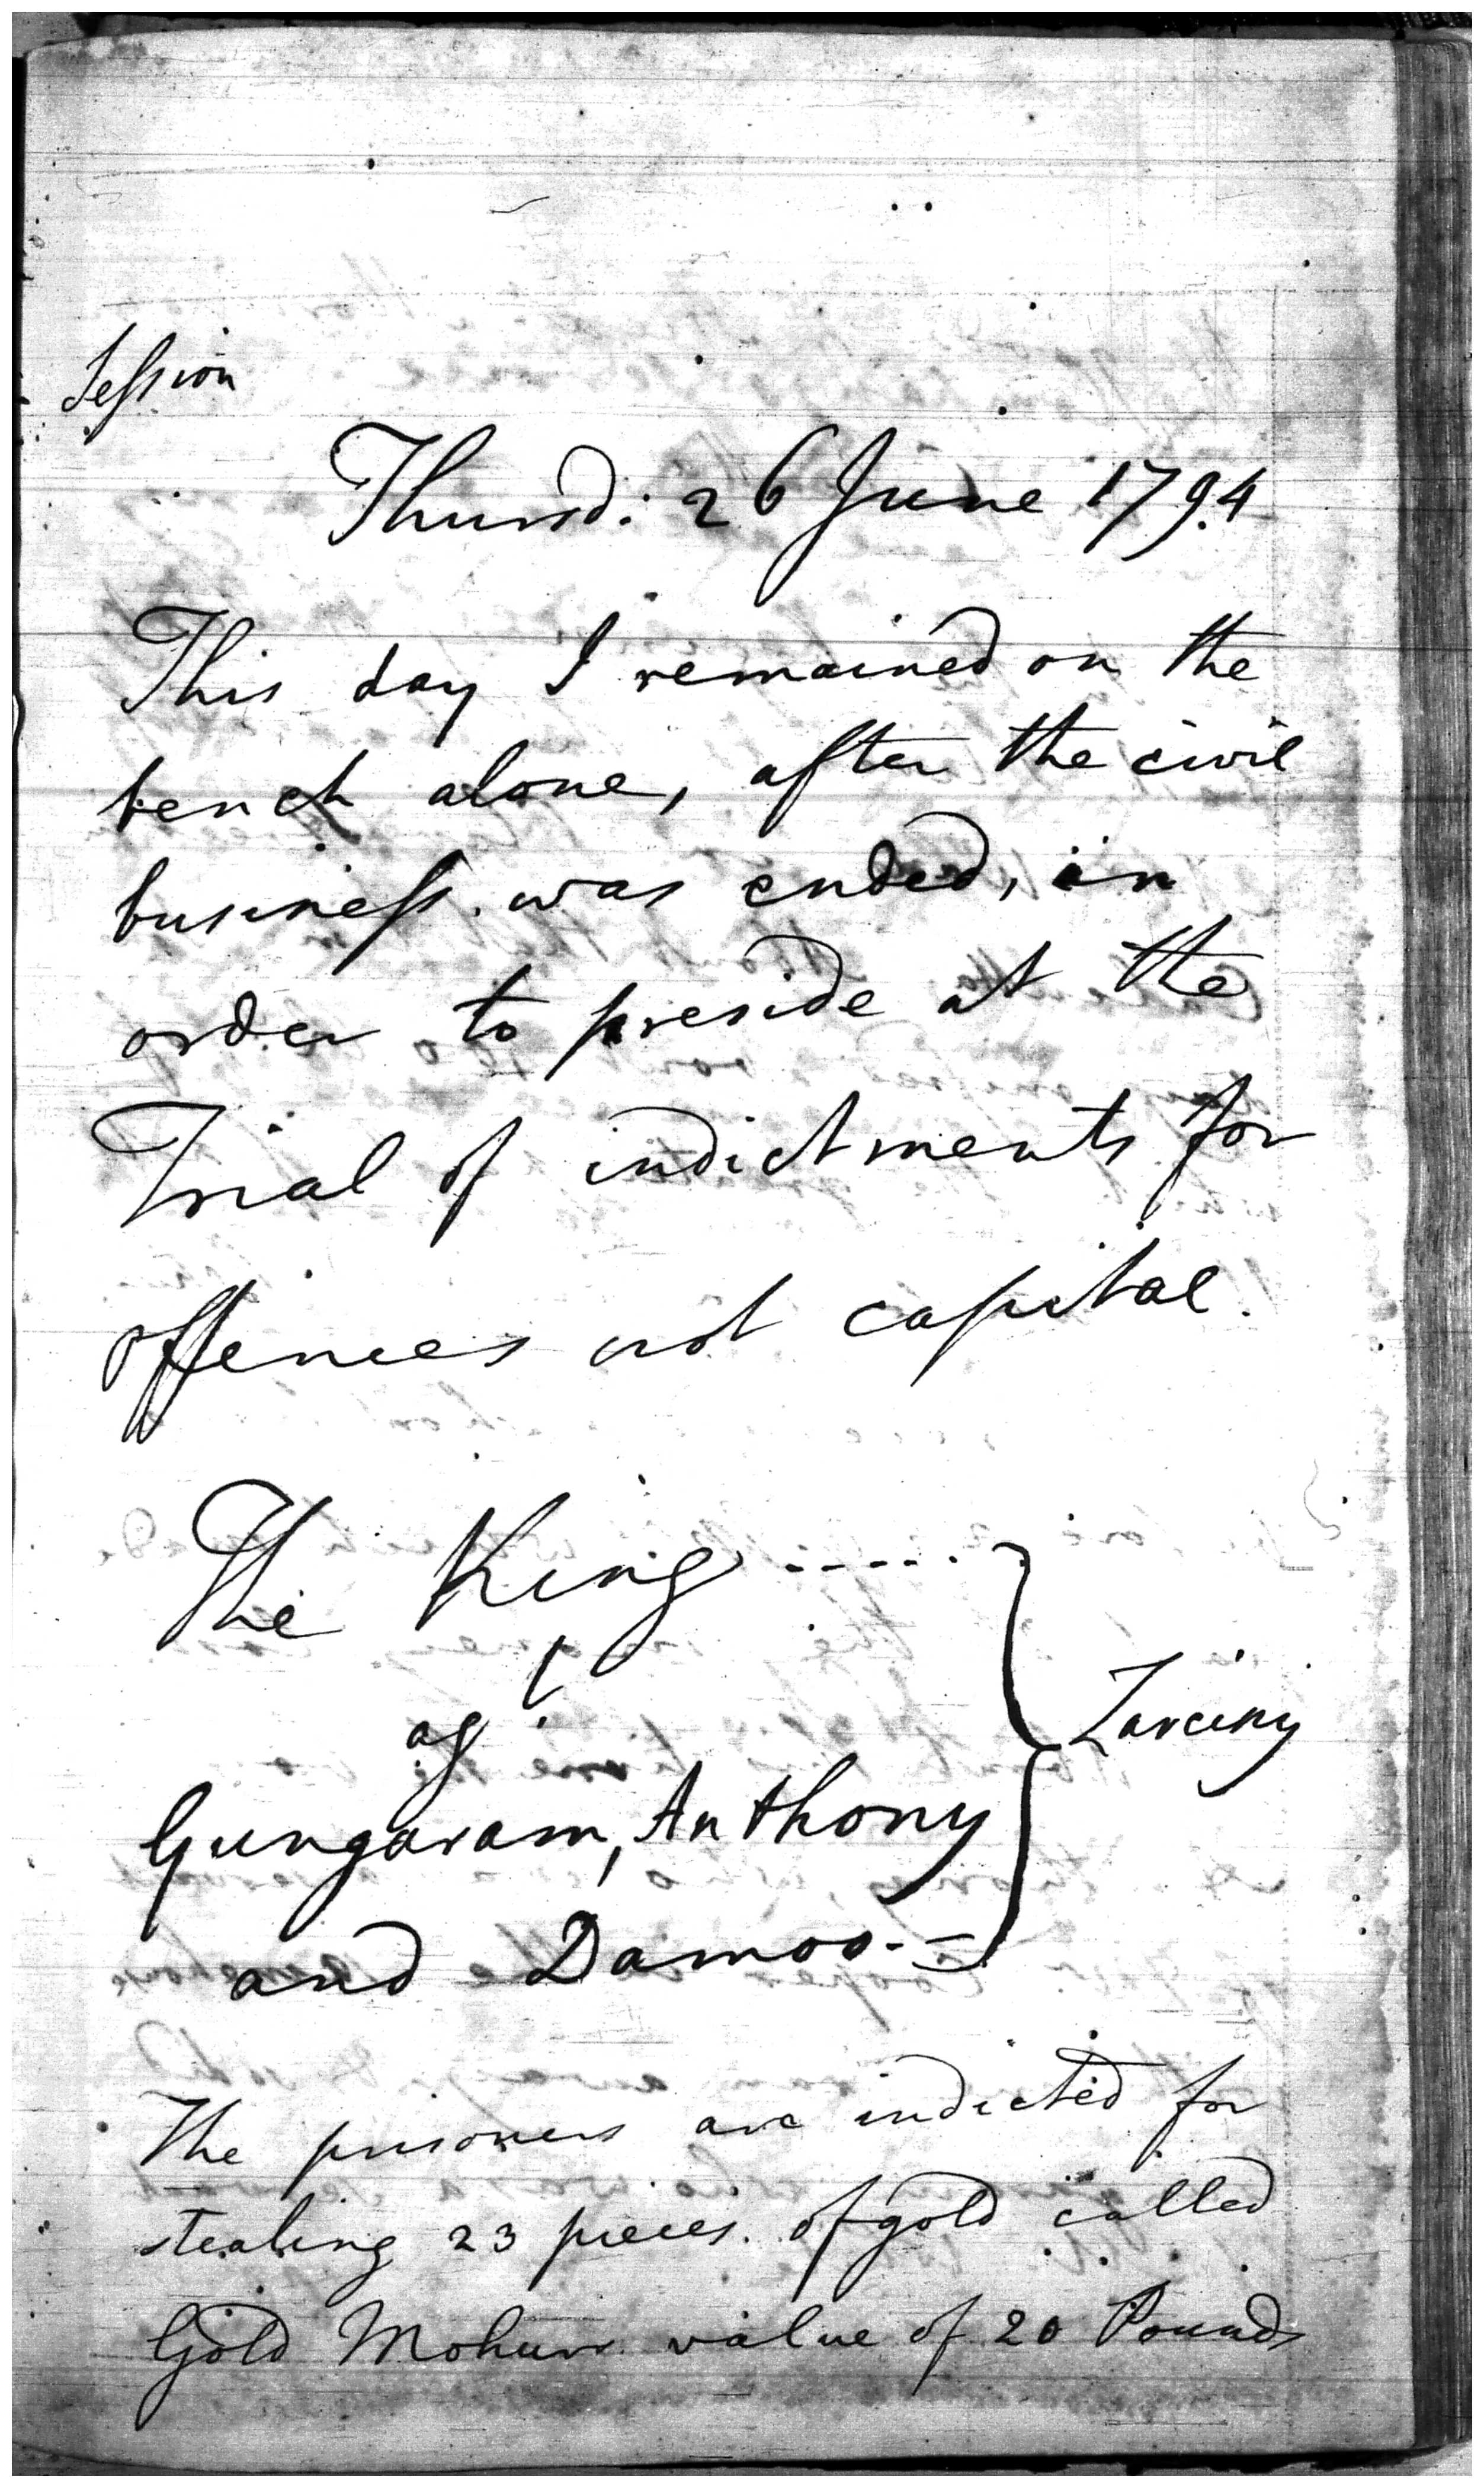 Session
Thursd: 26 June 1794
This day I remained on the
bench alone, after the civil
business was ended, in
order to preside at the
Trial of indictments for
offences not capital.
The King ------ } Larceny
agt
Gungaram, Anthony
and Damoo. -
The prisoners are indicted for
stealing 23 pieces of gold called
Gold Mohurs value of 20 Pounds